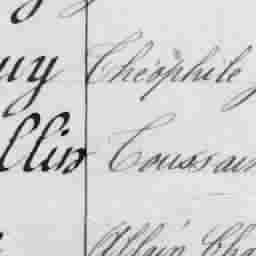 uy Théophile
llin Toussain
Allain Cha